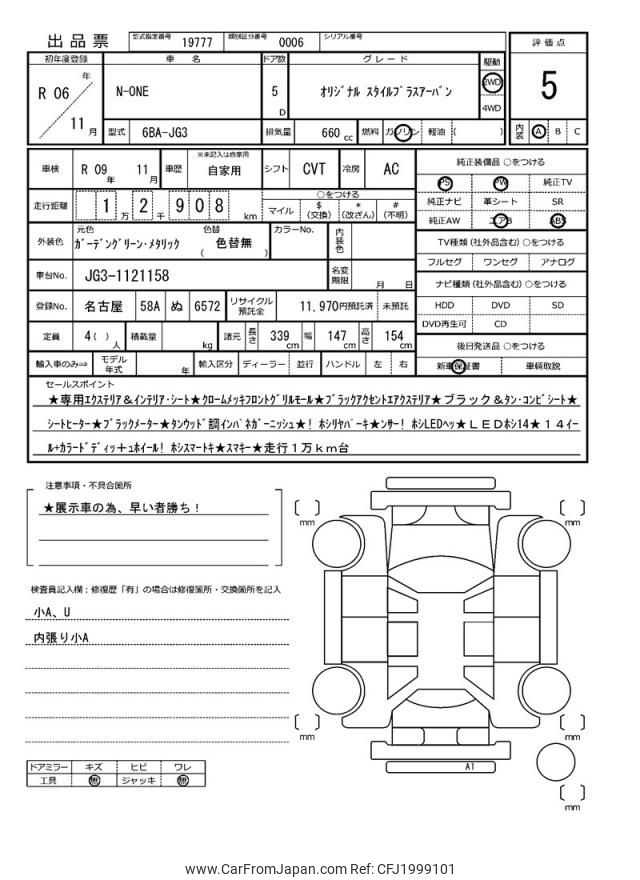 出品票 型式指定番号 19777 類別区分番号 0006 シリアル番号
評価点
5
内装 A B C
初年度登録 車名 ドア数 グレード 駆動
R 06 年 11 月
N-ONE
5 D
オリジナル スタイルプラスアーバン
2WD
4WD
型式 6BA-JG3 排気量 660 cc 燃料 ガソリン 軽油 ( )
車検 R 09 年 11 月 車歴 ※未記入は自家用 自家用 シフト CVT 冷房 AC
走行距離 1 万 2 千 9 0 8 km
○をつける
マイル $ (交換) * (改ざん) # (不明)
外装色 元色 ガーデングリーン・メタリック 色替 ( 色替無 ) カラーNo. 内装色
車台No. JG3-1121158 名変期限 月 日
登録No. 名古屋 58A ぬ 6572 リサイクル預託金 11,970円預託済 未預託
定員 4( ) 人 積載量 kg 諸元 長さ 339 cm 幅 147 cm 高さ 154 cm
輸入車のみ⇒ モデル年式 年 輸入区分 ディーラー 並行 ハンドル 左 右
純正装備品 ○をつける
PS PW 純正TV
純正ナビ 革シート SR
純正AW エアB ABS
TV種類 (社外品含む) ○をつける
フルセグ ワンセグ アナログ
ナビ種類 (社外品含む) ○をつける
HDD DVD SD
DVD再生可 CD
後日発送品 ○をつける
新車保証書 車輌取説
セールスポイント
★専用エクステリア&インテリア・シート★クロームメッキフロントグリルモール★ブラックアクセントエクステリア★ブラック&タン・コンビシート★
シートヒーター★ブラックメーター★タンウッド調インパネガーニッシュ★! ホンリヤパーキ★ンサー! ホンLEDヘッ★LEDホシ14★14イー
ル+カラードディッ+ュホイール! ホンスマートキ★スマキー★走行1万km台
注意事項・不具合箇所
★展示車の為、早い者勝ち!
検査員記入欄:修復歴「有」の場合は修復箇所・交換箇所を記入
小A、U
内張り小A
ドアミラー キズ ヒビ ワレ
工具 無 ジャッキ 無
mm
mm
mm
mm
mm
A1
www.CarFromJapan.com Ref: CFJ1999101